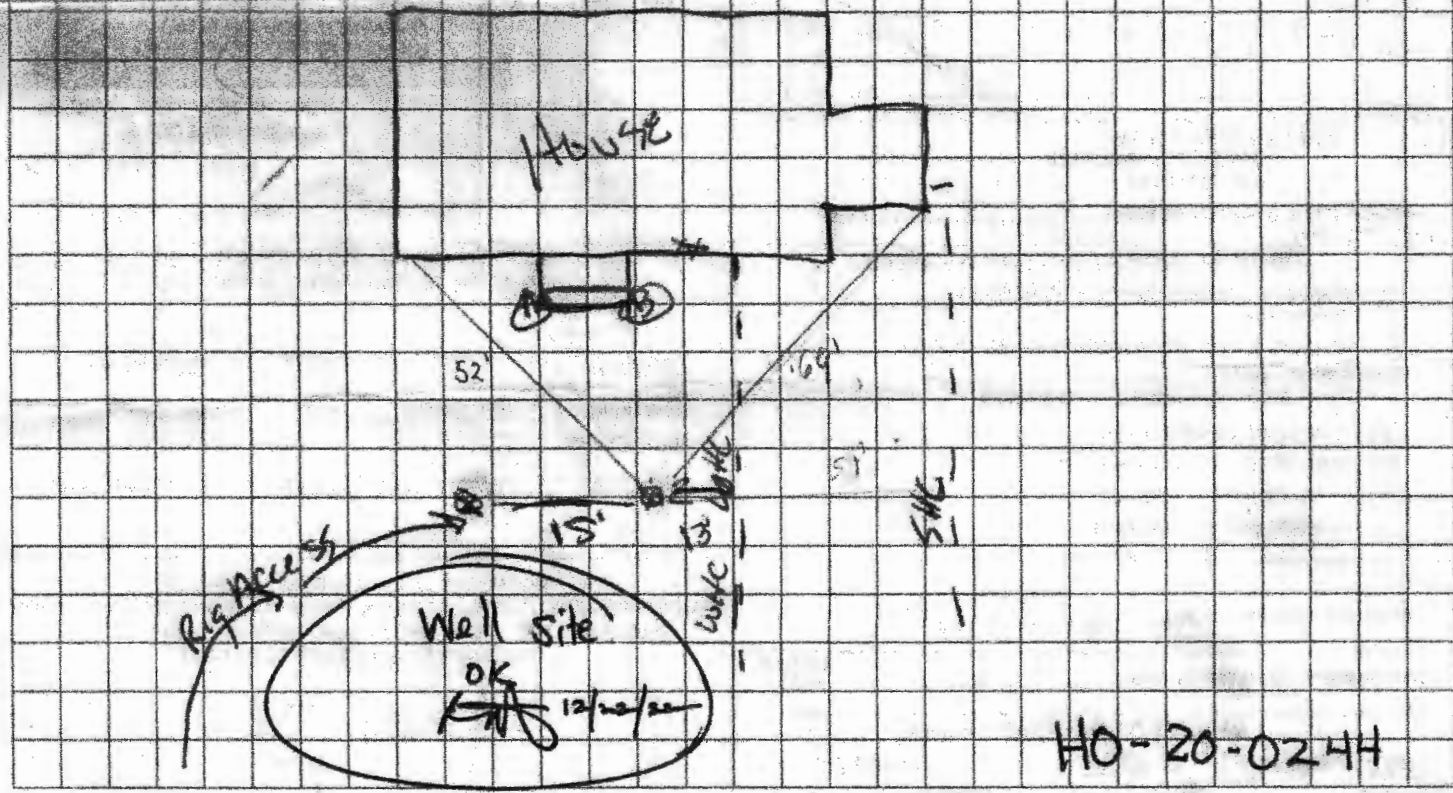 House
A B
52'
15'
13'
WHC
WHC
SHC
Rig Access
Well Site
OK
12/22/22
HO-20-0244